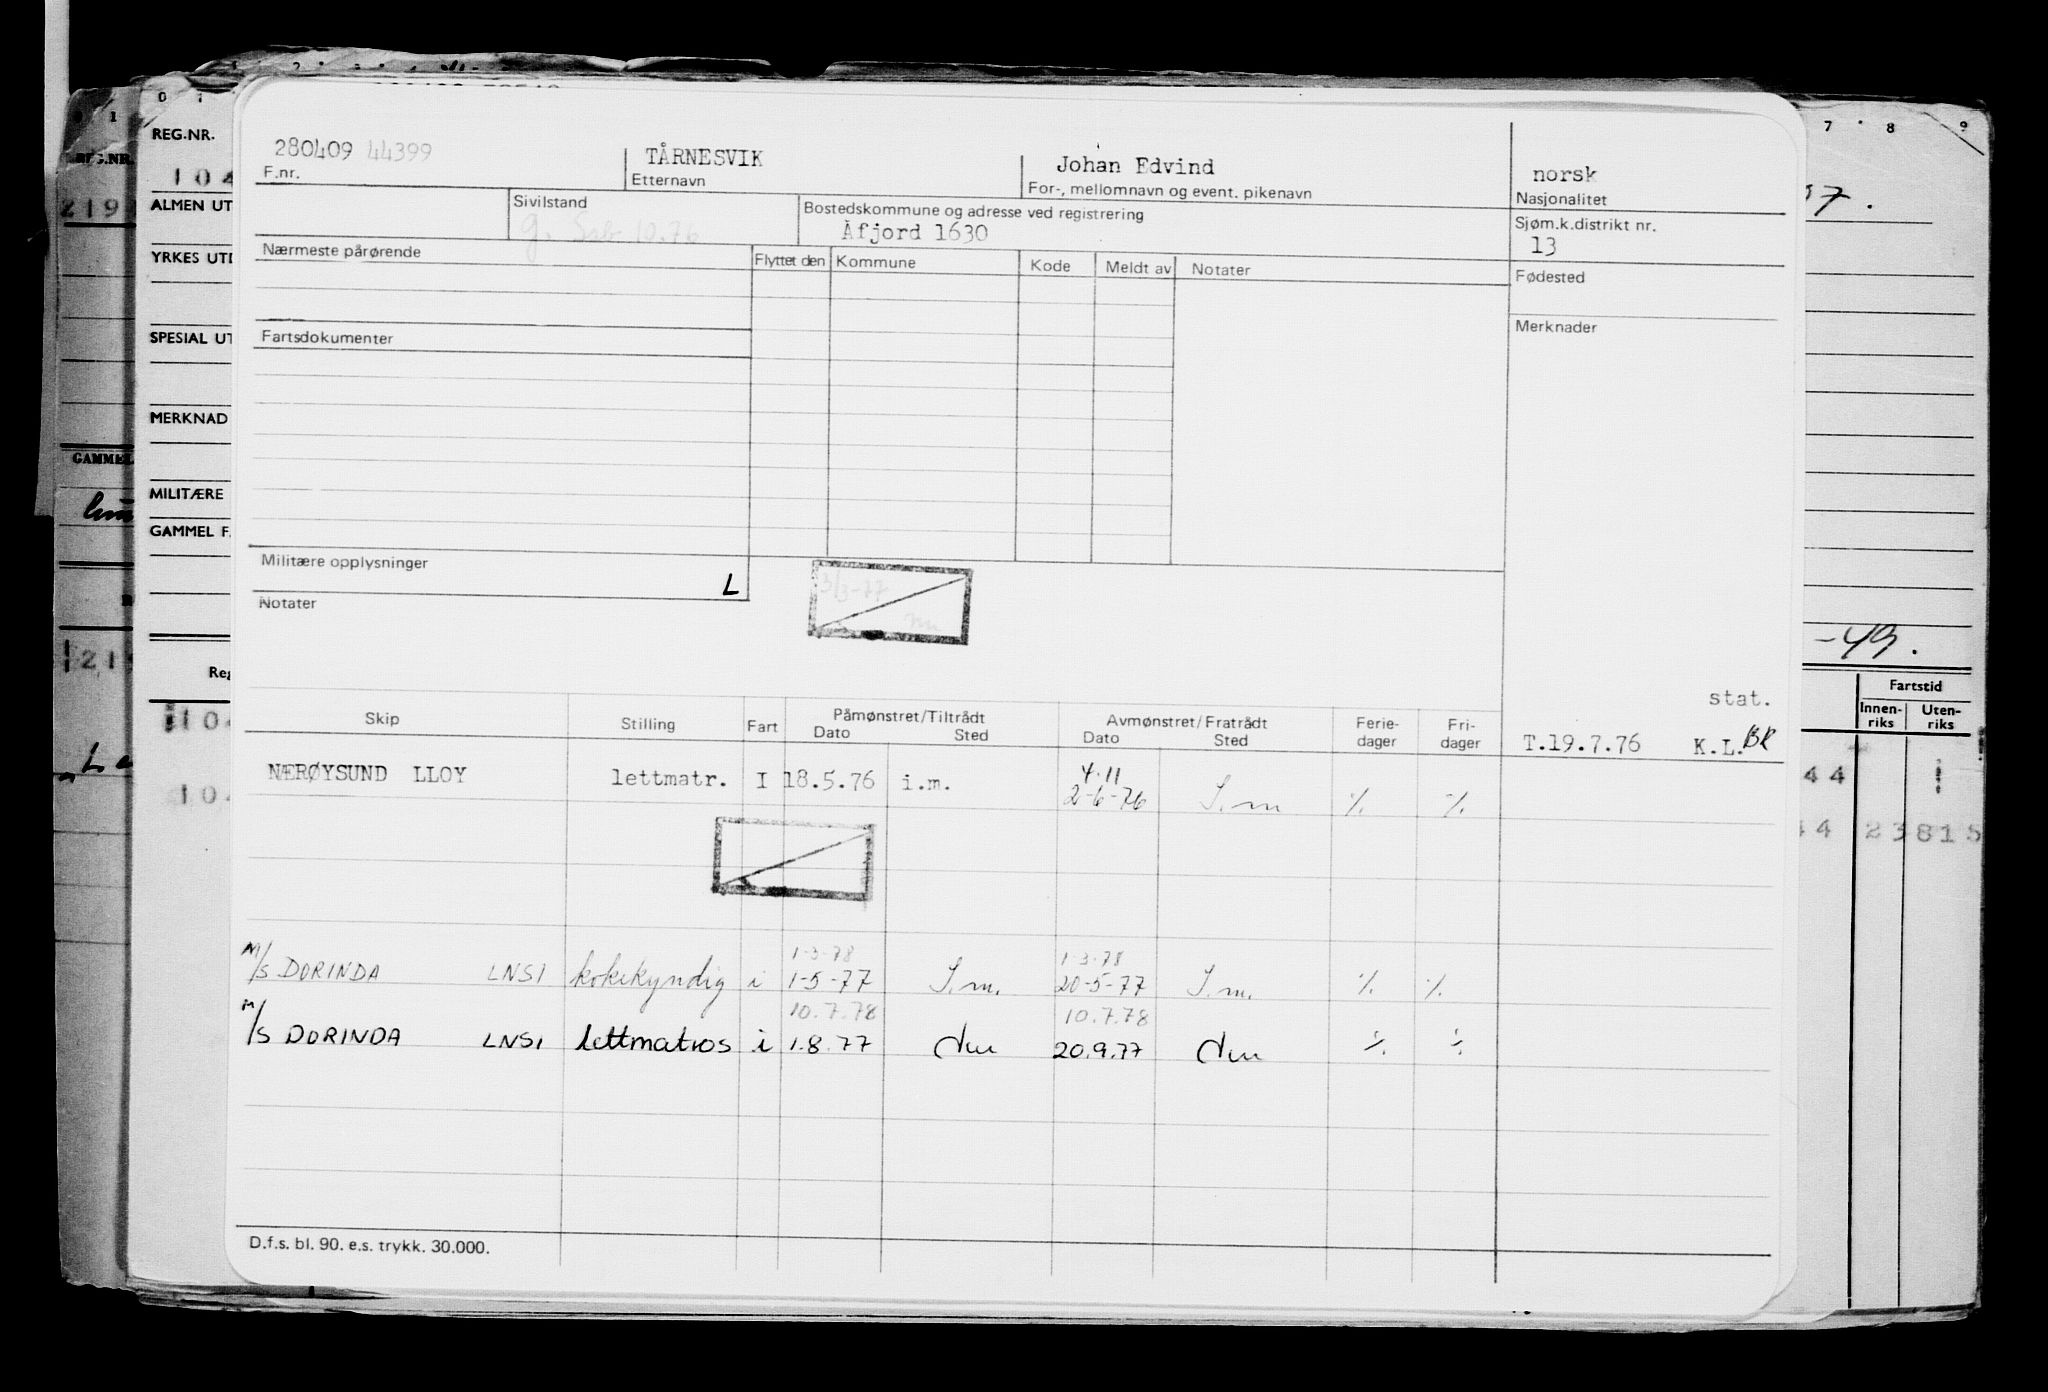 0 1
7 8 9
REG.NR.
104
2191
ALMEN UT
YRKES UTD
SPESIAL UT
MERKNAD
GAMMEL
MILITÆRE
GAMMEL F
Reg
104
104
-49.
Fartstid
Innen-riks Uten-riks
44
44 23815
280409 44399 TÅRNESVIK Johan Edvind norsk
F.nr. Etternavn For-, mellomnavn og event. pikenavn Nasjonalitet
Sivilstand Bostedskommune og adresse ved registrering Sjøm.k.distrikt nr.
g. Srb 10.76 Åfjord 1630 13
Nærmeste pårørende Flyttet den Kommune Kode Meldt av Notater Fødested
Merknader
Fartsdokumenter
Militære opplysninger L
3/3-77
Notater
stat.
Skip Stilling Fart Påmønstret/Tiltrådt Avmønstret/Fratrådt Ferie- Fri-
Dato Sted Dato Sted dager dager
T.19.7.76 K.L. BR
4.11
NÆRØYSUND LLOY lettmatr. I 18.5.76 i.m. 2-6-76 I.m ٪ ٪
1-3-78 1-3-78
M/S DORINDA LNSI kokekyndig i 1-5-77 I.m. 20-5-77 I.m. ٪ ٪
10.7.78 10.7.78
M/S DORINDA LNSI lettmatros i 1.8.77 dm 20.9.77 dm ٪ ٪
D.f.s. bl. 90. e.s. trykk. 30.000.